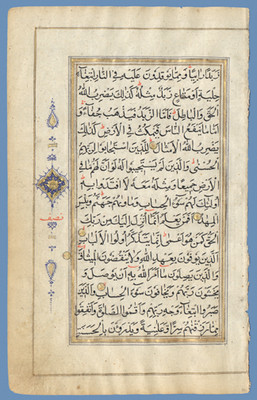 زَبَدًا رَابِيًا وَمِمَّا يُوقِدُونَ عَلَيْهِ فِي النَّارِ ابْتِغَاءَ
حِلْيَةٍ أَوْ مَتَاعٍ زَبَدٌ مِثْلُهُ كَذَلِكَ يَضْرِبُ اللهُ
الْحَقَّ وَالْبَاطِلَ فَأَمَّا الزَّبَدُ فَيَذْهَبُ جُفَاءً وَ
أَمَّا مَا يَنْفَعُ النَّاسَ فَيَمْكُثُ فِي الْأَرْضِ كَذَلِكَ
يَضْرِبُ اللهُ الْأَمْثَالَ لِلَّذِينَ اسْتَجَابُوا لِرَبِّهِمُ
الْحُسْنَى وَالَّذِينَ لَمْ يَسْتَجِيبُوا لَهُ لَوْ أَنَّ لَهُمْ مَا فِي
الْأَرْضِ جَمِيعًا وَمِثْلَهُ مَعَهُ لَافْتَدَوْا بِهِ
أُولَئِكَ لَهُمْ سُوءُ الْحِسَابِ وَمَأْوَيهُمْ جَهَنَّمُ وَبِئْسَ
الْمِهَادُ أَفَمَنْ يَعْلَمُ أَنَّمَا أُنْزِلَ إِلَيْكَ مِنْ رَبِّكَ
الْحَقُّ كَمَنْ هُوَ أَعْمَى إِنَّمَا يَتَذَكَّرُ أُولُوا الْأَلْبَابِ
الَّذِينَ يُوفُونَ بِعَهْدِ اللهِ وَلَا يَنْقُضُونَ الْمِيثَاقَ
وَالَّذِينَ يَصِلُونَ مَا أَمَرَ اللهُ بِهِ أَنْ يُوصَلَ وَ
يَخْشَوْنَ رَبَّهُمْ وَيَخَافُونَ سُوءَ الْحِسَابِ وَالَّذِينَ
صَبَرُوا ابْتِغَاءَ وَجْهِ رَبِّهِمْ وَأَقَامُوا الصَّلَوةَ وَأَنْفَقُوا
مِمَّا رَزَقْنَاهُمْ سِرًّا وَعَلَانِيَةً وَيَدْرَؤُنَ بِالْحَسَـ
نصف